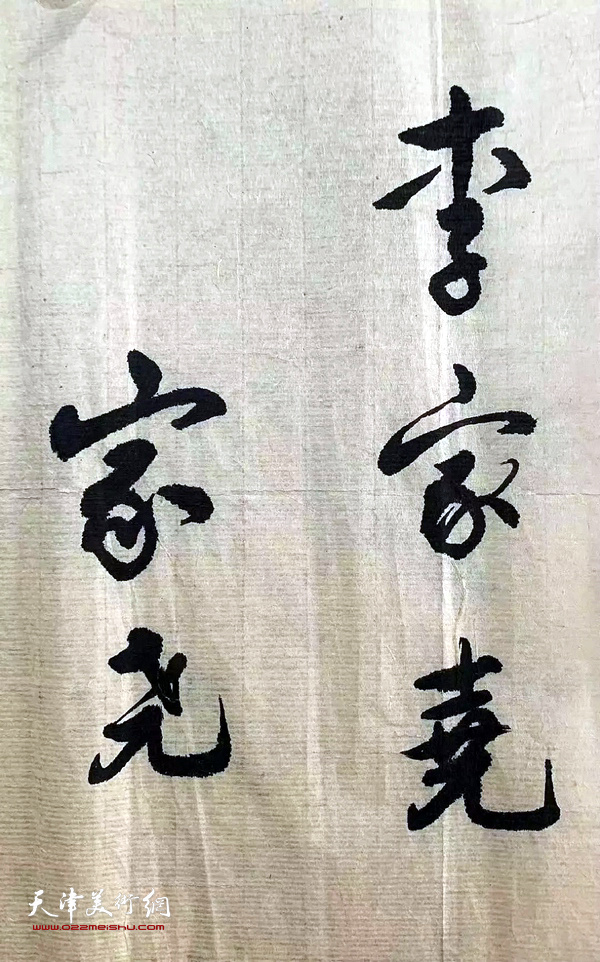 李家堯
家尧
天津美術網
www.022meishu.com